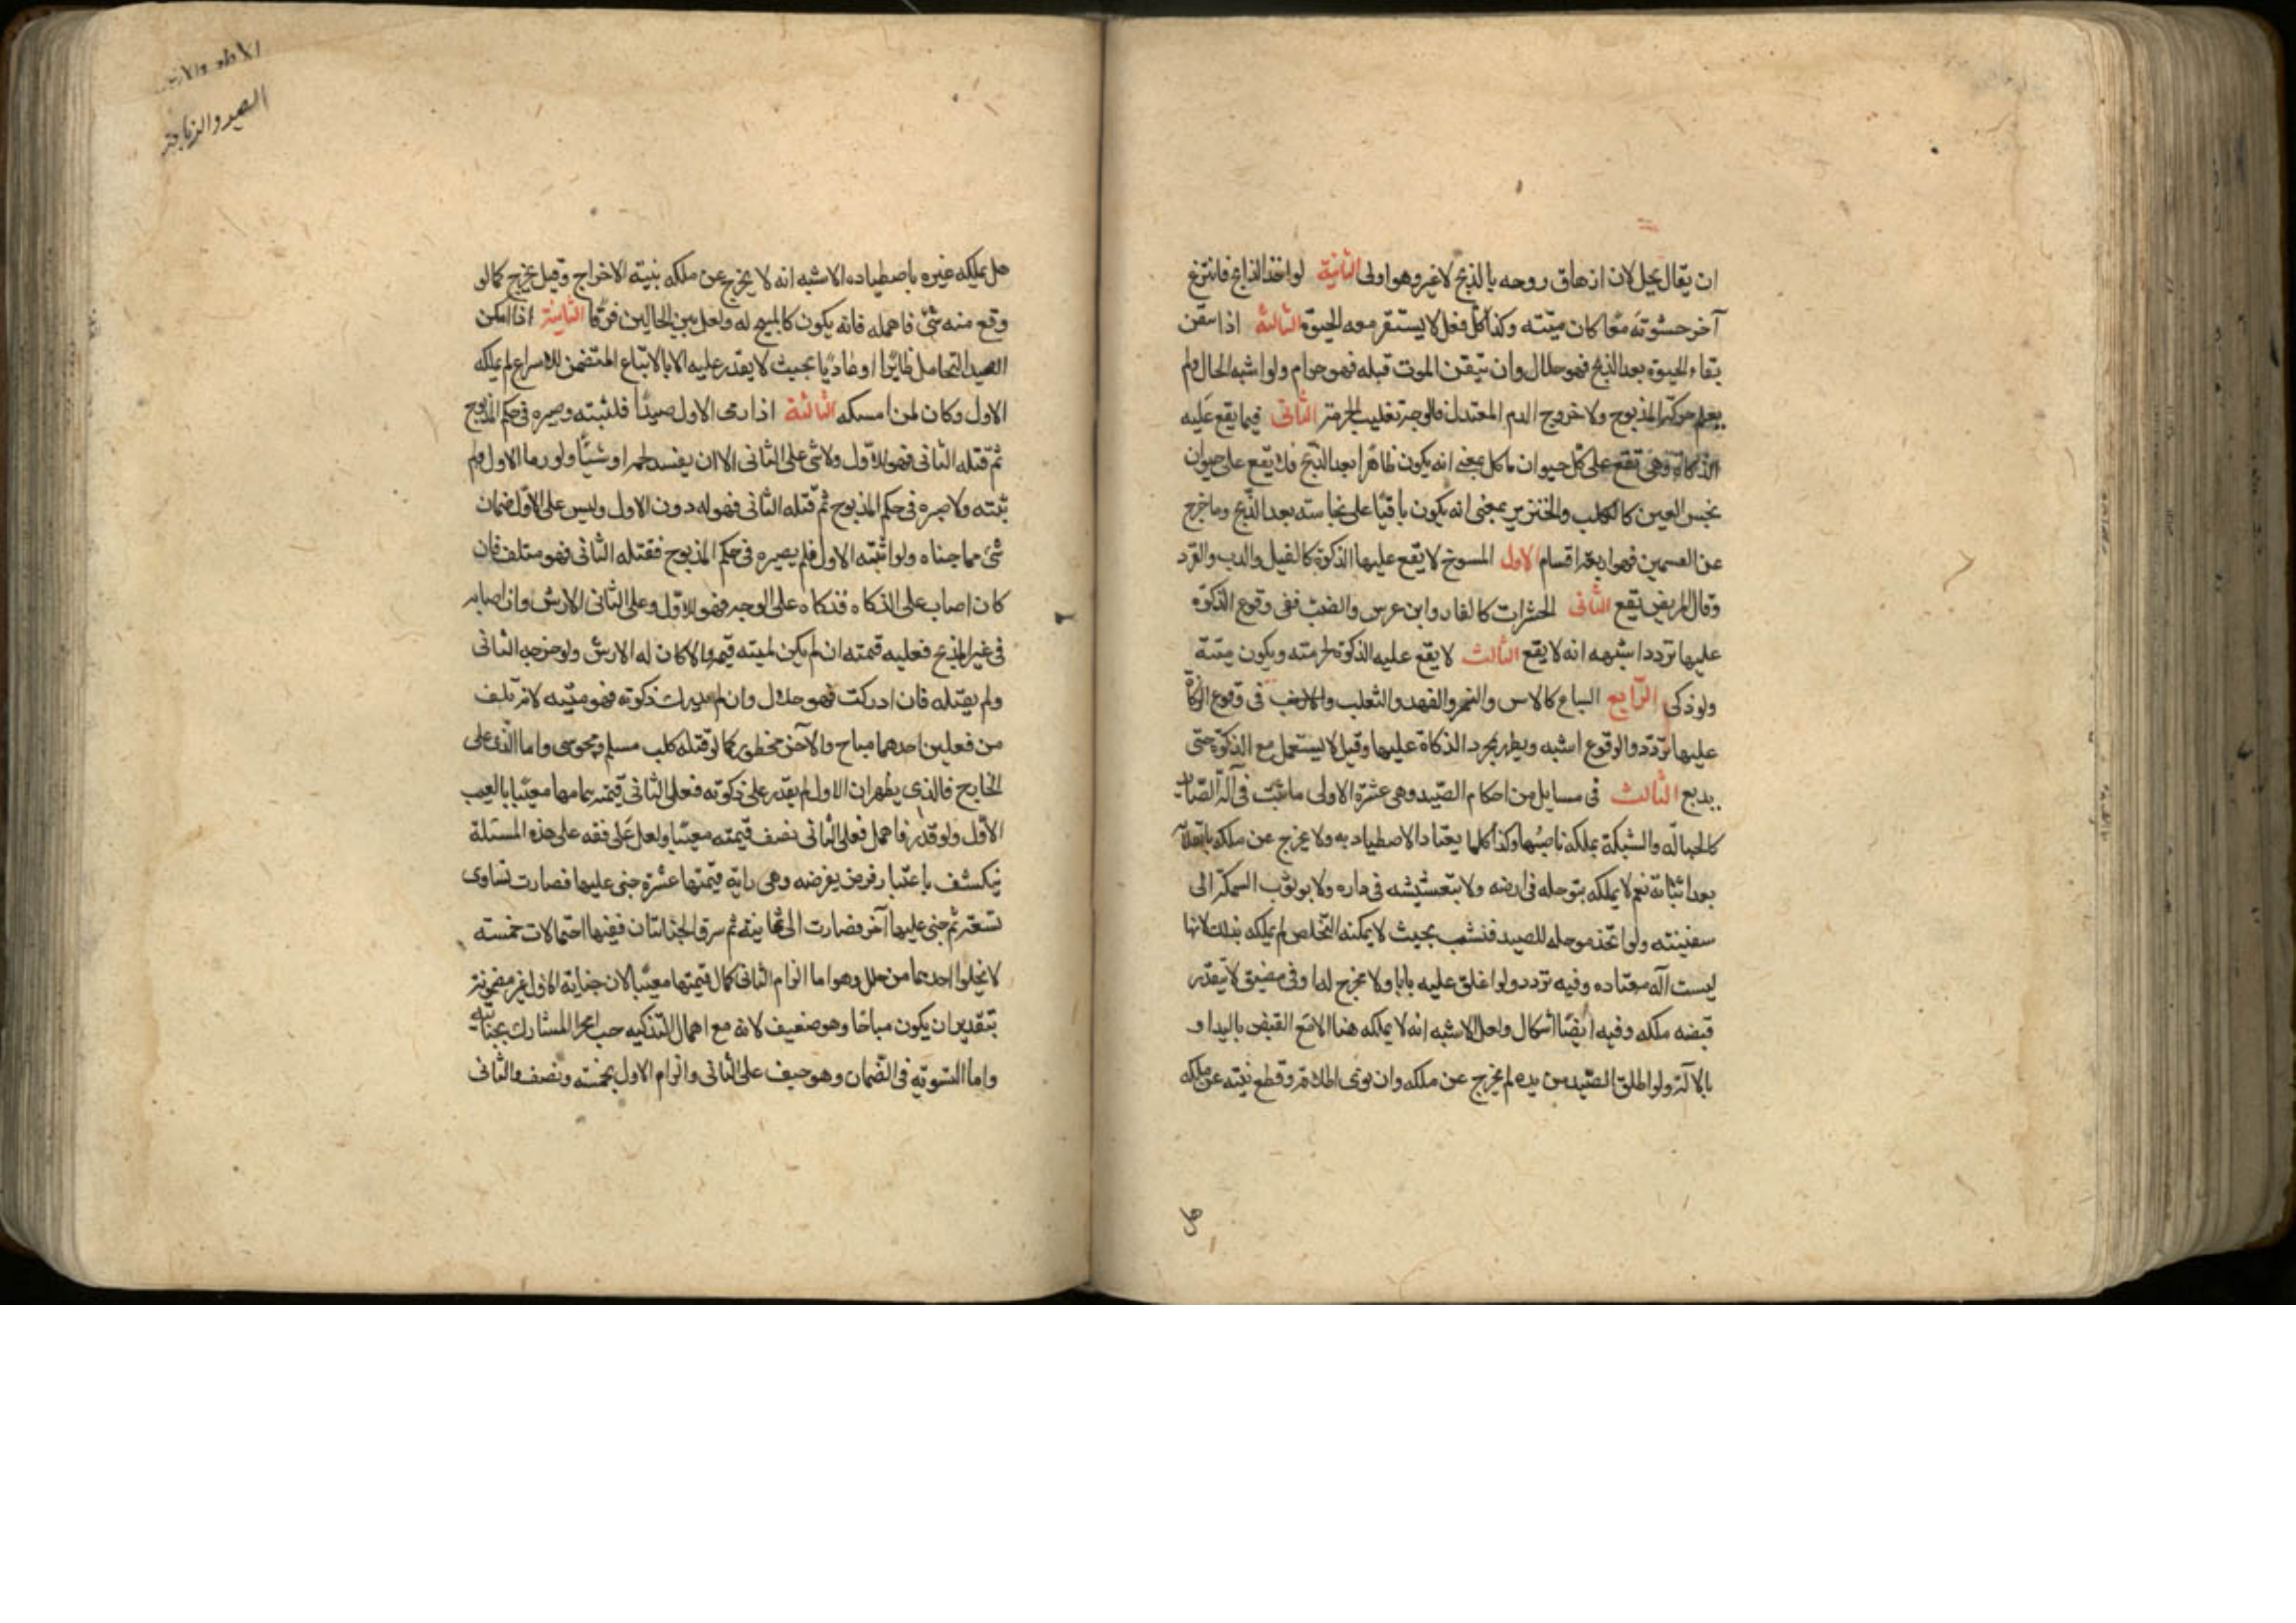 ان يقال يحل لان ازهاق روحه بالذبح لاغير وهو اولى الثانية لو اخذ الذابح فانتزع
آخر حشوته معًا كان ميتته وكذا كل فعل لا يستقر معه الحيوة الثالثة اذا تيقن
بقاء الحيوة بعد الذبح فهو حلال وان تيقن الموت قبله فهو حرام ولو اشبه الحال ولم
يعلم حركة المذبوح ولا خروج الدم المعتدل فالوجه تغليب الحرمة الثانى فيما يقع عليه
الذكاة وهى تقع على كل حيوان ماكل بمعنى انه يكون ظاهرا بعد الذبح فلا يقع على حيوان
نجس العين كالكلب والخنزير بمعنى انه يكون باقيا على نجاسته بعد الذبح وما خرج
عن القسمين فهو اربعة اقسام الاول المسوخ لا يقع عليها الذكوة كالفيل والدب والقرد
وقال المرتضى يقع الثانى الحشرات كالفار وابن عرس والضب ففى وقوع الذكوة
عليها تردد اشبهه انه لا يقع الثالث لا يقع عليه الذكوة لحرمته ويكون ميتة
ولو ذكى الرابع السباع كالاسد والنمر والفهد والثعلب فى وقوع الزكاة
عليها تردد والوقوع اشبه ويطهر بمجرد الذكاة عليها وقيل لا يستعمل مع الذكوة حتى
يدبع الثالث فى مسايل من احكام الصيد وهى عشرة الاولى ما يثبت فى آلة الصياد
كالحبالة والشبكة يملكه ناصبها وكذا كلما يعتاد الاصطياد به ولا يخرج عن ملكه بانفلاته
بعد اثباته نعم لا يملكه بتوحله فى ارضه ولا بتعشيشه فى داره ولا بوثوب السمكة الى
سفينته ولو اتخذ موحلة للصيد فنشب بحيث لا يمكنه التخلص لم يملكه بذلك لانها
ليست آلة معتاده وفيه تردد ولو اغلق عليه بابا ولا مخرج له او فى مضيق لا يتعذر
قبضه ملكه وفيه ايضًا اشكال ولعل الاشبه انه لا يملكه هنا الا مع القبض باليد او
بالآلة ولو اطلق الصيد من يده لم يخرج عن ملكه وان نوى اطلاقه وقطع نيته عن ملكه
هل
الصيد والذباحة
هل يملكه غيره باصطياده الاشبه انه لا يخرج عن ملكه بنية الاخراج وقيل يخرج كما لو
وقع منه شئ فاهمله فانه يكون كالمبيح له ولعل بين الحالين فرقا الثانية اذا امكن
الصيد التحامل طايرًا او عاديًا بحيث لا يقدر عليه الا بالاتباع المتضمن للاسراع لم يملكه
الاول وكان لمن امسكه الثالثة اذا رمى الاول صيدًا فلثبته وصيره فى حكم المذبوح
ثم قتله الثانى فهو للاول ولا شئ على الثانى الا ان يفسد لحمه او شيئًا ولو رماه الاول ولم
يثبته ولا صيره فى حكم المذبوح ثم قتله الثانى فهو له دون الاول وليس على الاول ضمان
شئ مما جناه ولو اثبته الاول فلم يصيره فى حكم المذبوح فقتله الثانى فهو متلف فان
كان اصاب على الذكاه فذكاه على الوجه فهو للاول وعلى الثانى الارش وان اصابه
فى غير المذبح فعليه قمته ان لم يكن لميته قيمة والا كان له الارش ولو جرحه الثانى
ولم يقتله فان ادركت فهو حلال وان لم يدرك ذكوته فهو ميته لانه تلف
من فعلين احدهما مباح والآخر محظور كما لو قتله كلب مسلم ومجوسى واما الذى على
الجارح فالذى يظهر ان الاول لم يقدر على ذكوته فعلى الثانى قيمته بتمامها معيبًا بالعيب
الاول ولو قدر فاهمل فعلى الثانى نصف قيمته معيبًا ولعل على فقه على هذه المسئلة
ينكشف باعتبار فرض يفرضه وهى دابة قيمتها عشرة جنى عليها فصارت تساوى
تسعة ثم جنى عليها آخر فصارت الى ثمانية ثم سرق الجنايتان ففيها احتمالات خمسه
لا يخلوا احدهما من خلل وهو اما الزام الثانى كمال قيمتها معيبًا لان جناية الاول غير مضمونة
بتقدير ان يكون مباحًا وهو ضعيف لانه مع اهمال التذكيه المشارك بجنايته
واما التسويه فى الضمان وهو حيف على الثانى والزام الاول بخمسه ونصف والثانى